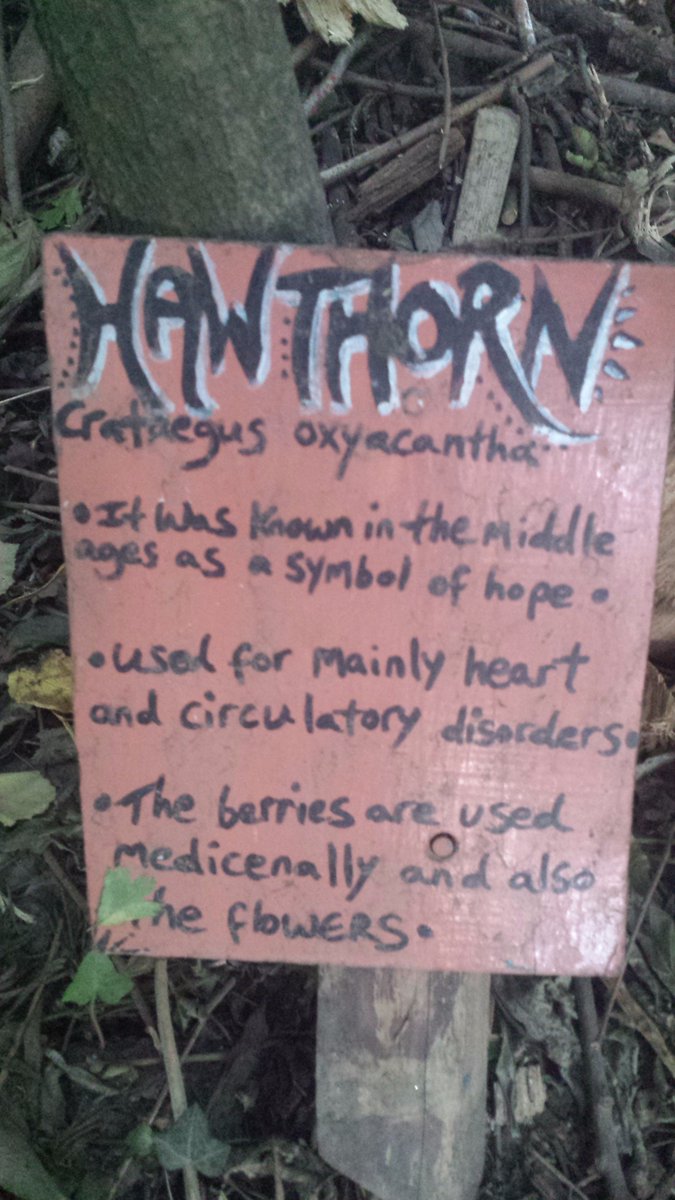 HAWTHORN
Crataegus oxyacantha
• It was known in the middle
ages as a symbol of hope •
• used for mainly heart
and circulatory disorders.
• The berries are used
medicenally and also
the flowers.